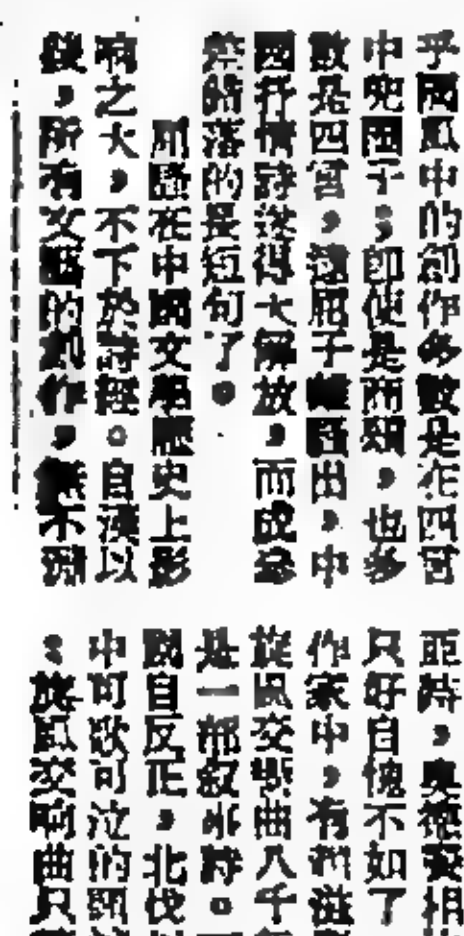 乎國風中的創作多數是在四言
中兜圈子；即使是頌，也多
數是四言，這圈子離騷出，中
國抒情詩從得大解放，而成參
差錯落的長短句了。
離騷在中國文學歷史上影
響之大，不下於詩經。自漢以
後，所有文藝的創作，無不淵
亞詩，奧德賽相
只好自愧不如了
作家中，有
旋風交響曲八千
是一部敘事詩。
說自反正，北伐
中可歌可泣的
：旋風交響曲只